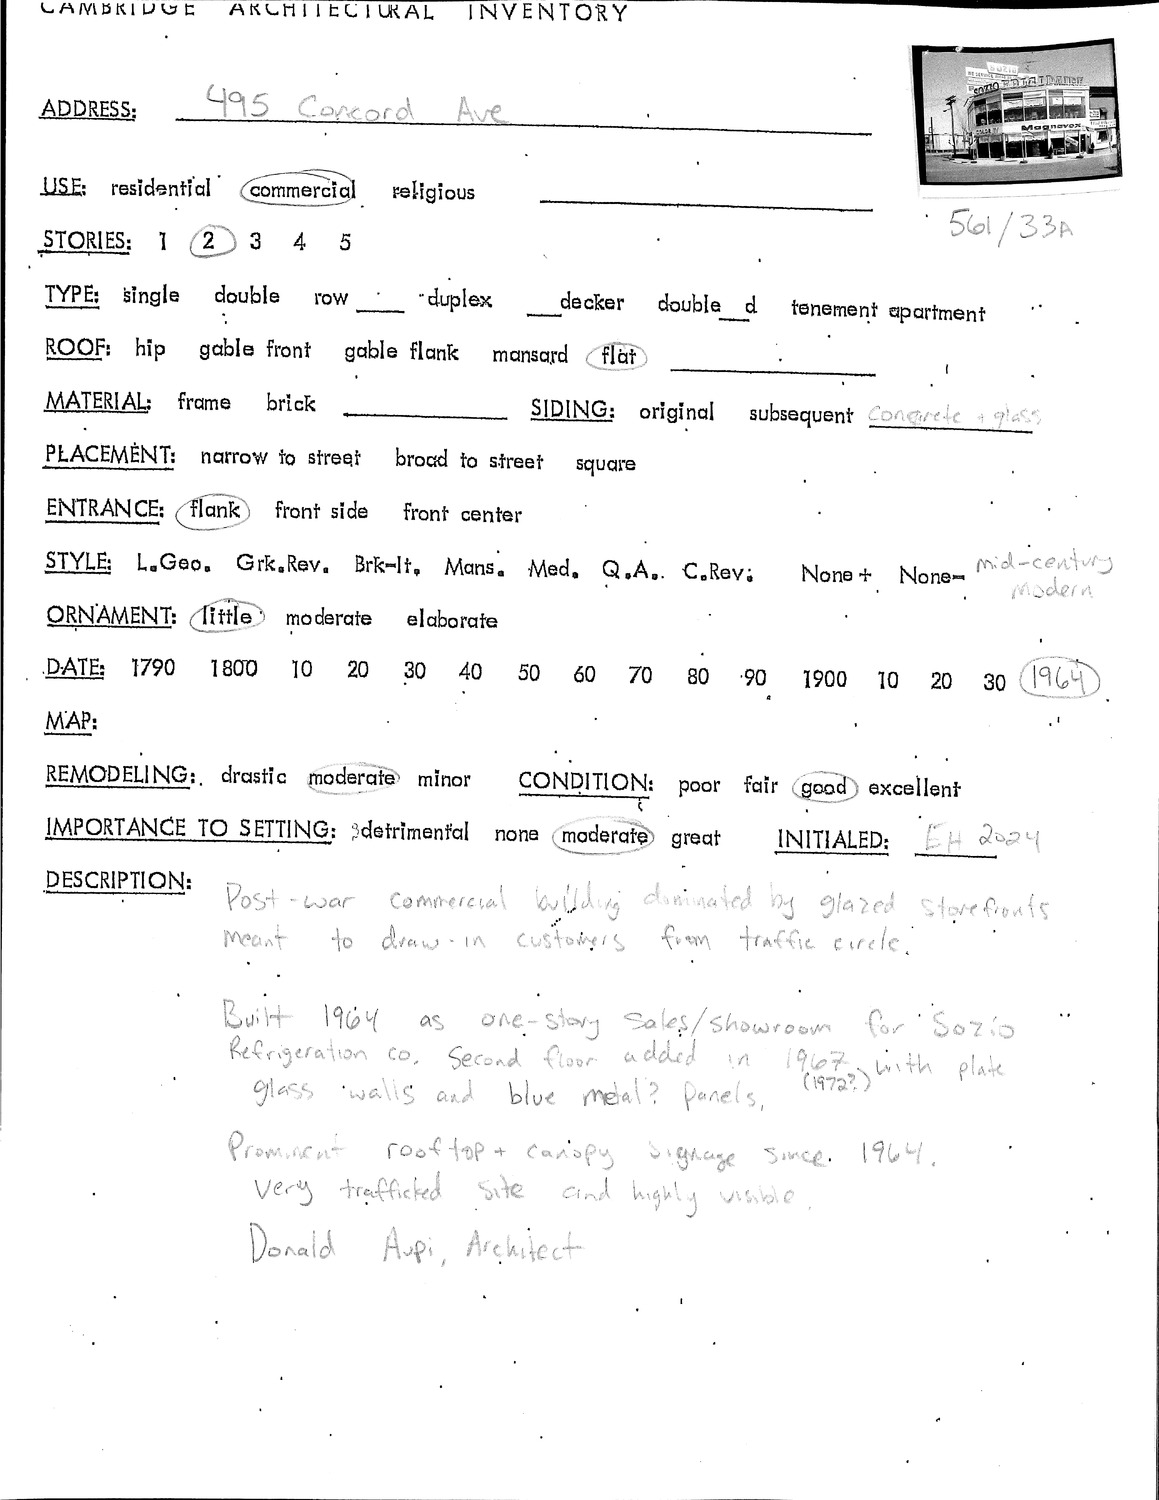 CAMBRIDGE ARCHITECTURAL INVENTORY
ADDRESS: 495 Concord Ave
SOZIO
SOZIO FRIGIDAIRE
Magnavox
561/33A
USE: residential commercial religious
STORIES: 1 2 3 4 5
TYPE: single double row ___ duplex ___decker double__d tenement apartment
ROOF: hip gable front gable flank mansard flat
MATERIAL: frame brick ___ SIDING: original subsequent Concrete + glass
PLACEMENT: narrow to street broad to street square
ENTRANCE: flank front side front center
STYLE: L.Geo. Grk.Rev. Brk-It. Mans. Med. Q.A. C.Rev. None+ None- mid-century modern
ORNAMENT: little moderate elaborate
DATE: 1790 1800 10 20 30 40 50 60 70 80 90 1900 10 20 30 1964
MAP:
REMODELING: drastic moderate minor CONDITION: poor fair good excellent
IMPORTANCE TO SETTING: detrimental none moderate great INITIALED: EH 2024
DESCRIPTION:
Post-war commercial building dominated by glazed storefronts
meant to draw-in customers from traffic circle.
Built 1964 as one-story sales/showroom for Sozio
Refrigeration Co. Second floor added in 1967 with plate
(1972?)
glass walls and blue metal? panels.
Prominent rooftop + canopy signage since 1964.
Very trafficked site and highly visible.
Donald Aupi, Architect